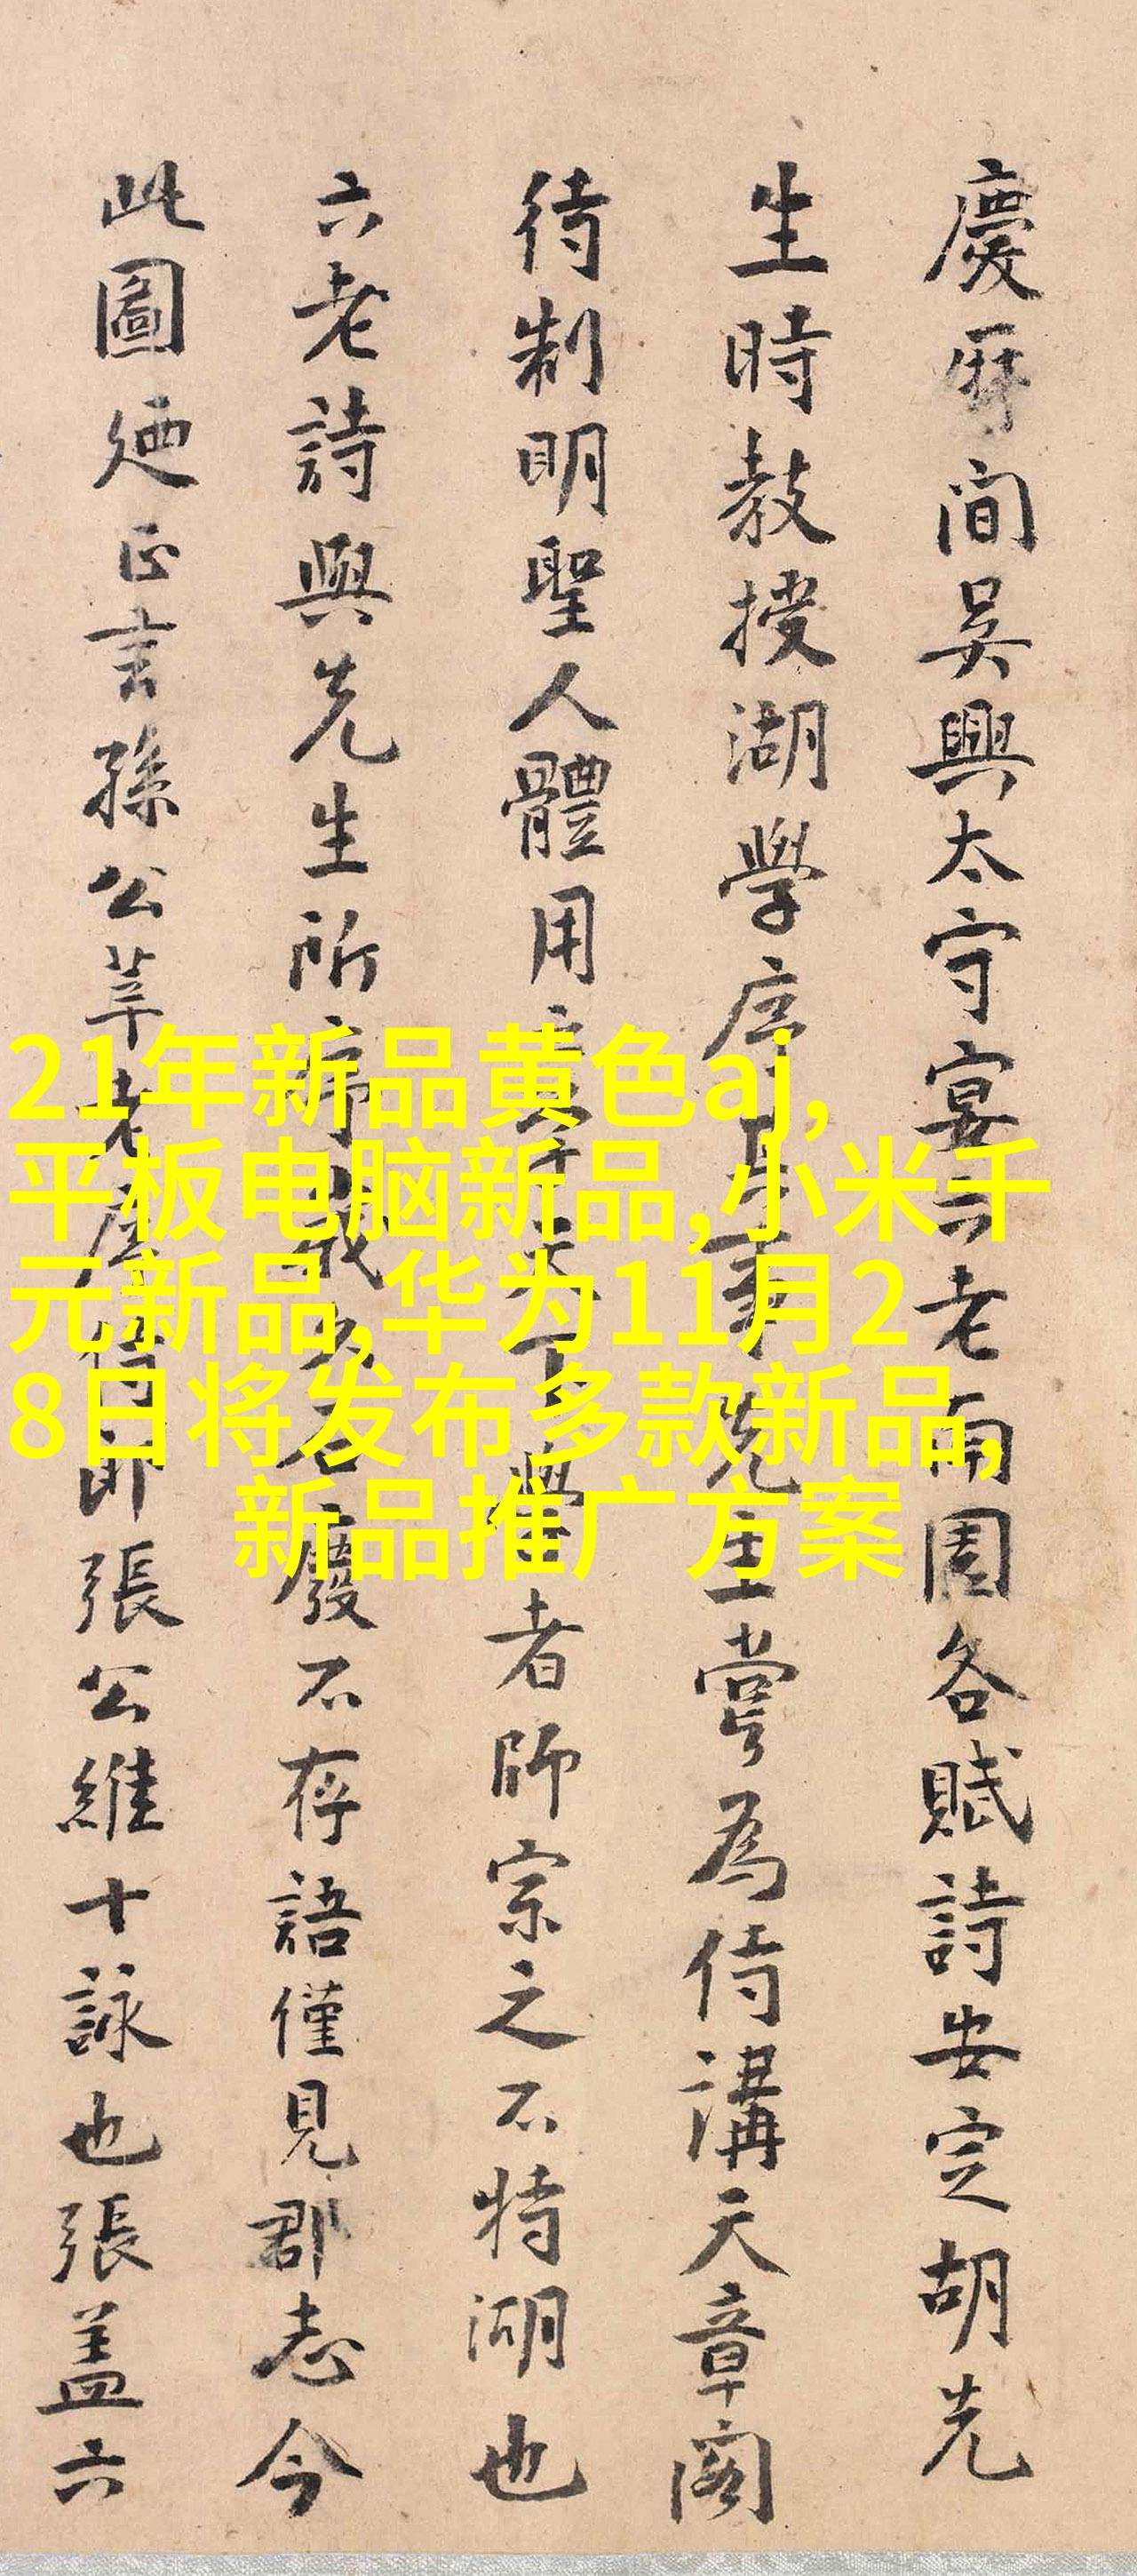 慶曆間吳興太守宴六老南園各賦詩安定胡先
生時教授湖學序其事先生嘗為侍講天章閣
待制明聖人體用之學天下學者師宗之不特湖也
六老詩與先生所序或久石廢不存語僅見郡志今
此圖廼正言孫公莘老虞侍郎張公維十詠也張蓋六
21年新品黄色aj,
平板电脑新品,小米千
元新品,华为11月2
8日将发布多款新品,
新品推广方案